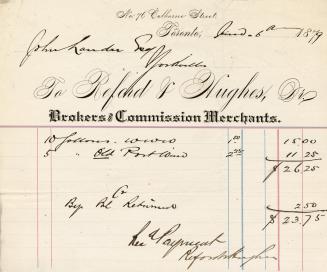 No. 76 Colborne Street,
Toronto, 6th 1879
John Lauder Esq
Yorkville
To Reford & Hughes, Dr.
Brokers and Commission Merchants.
10 Gallons 1.50 15.00
5 " Old Port Wine 2.25 11 25
$ 26.25
Cr
By Bl Returned 2.50
$ 23.75
Payment
Reford & Hughes